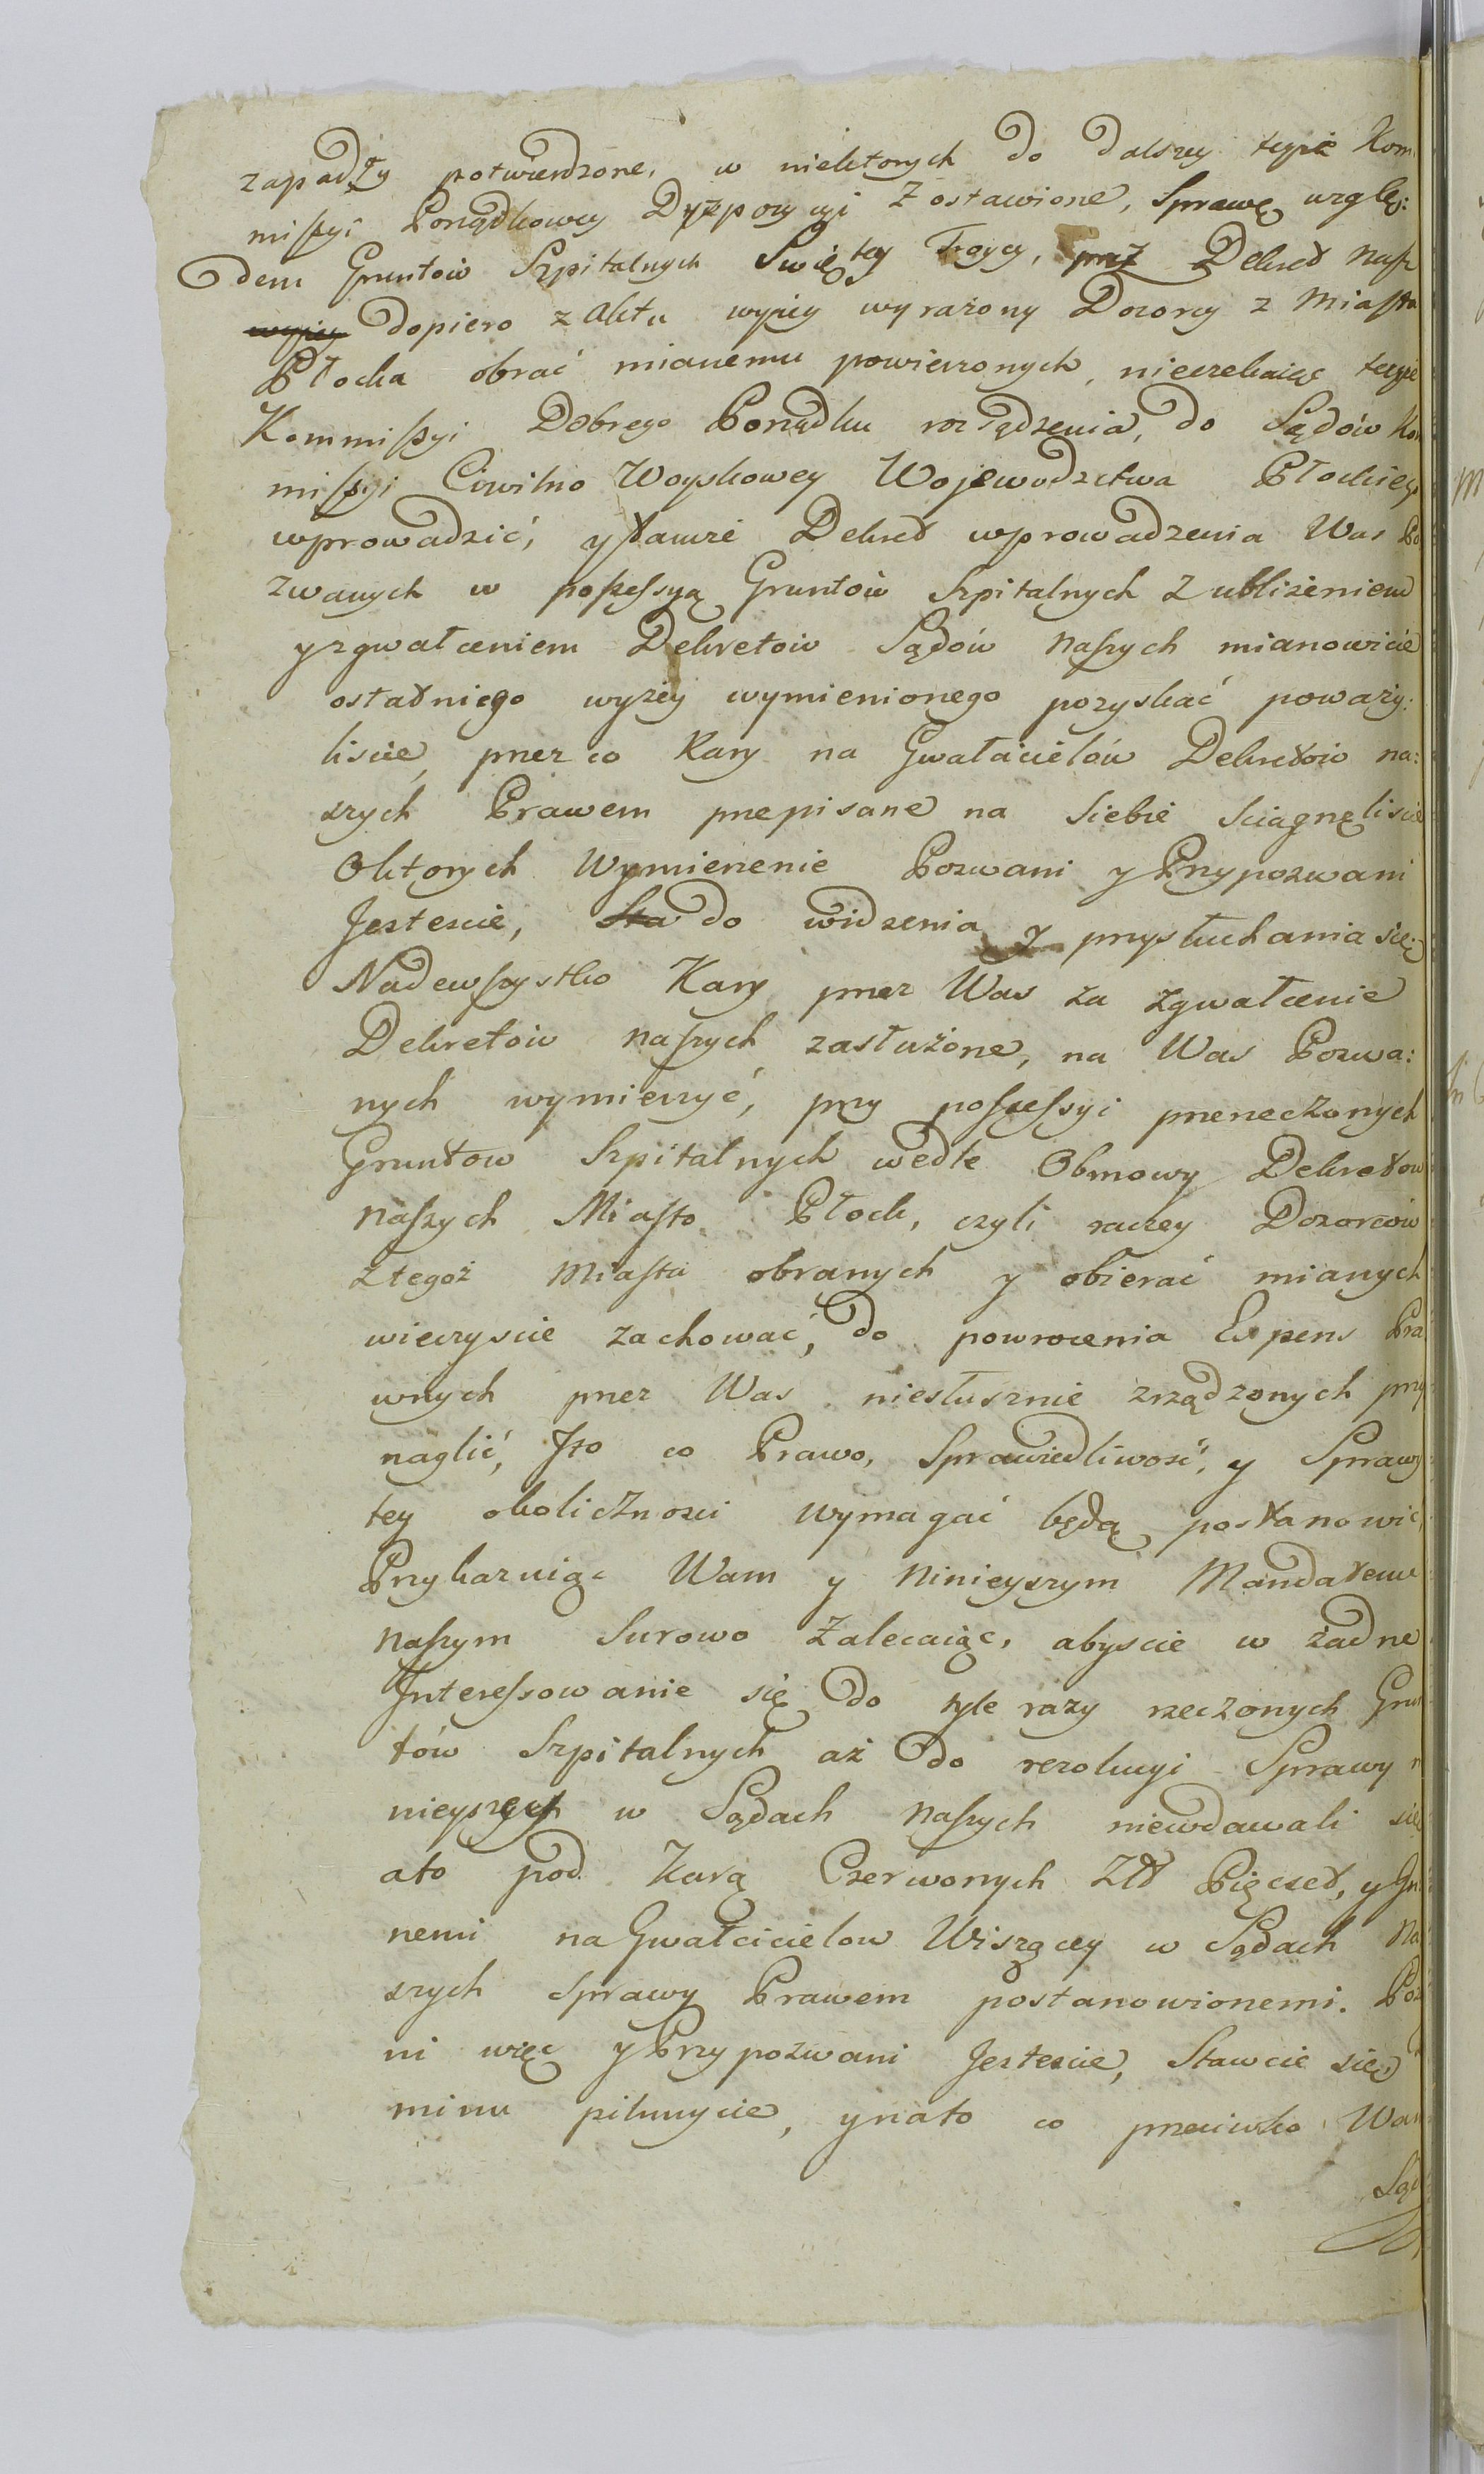 zapadży potwierdzone, w niektorych do dalszey teyże Kom
missyi Porządkowey Dyzpozycyi Zostawione, Sprawę wzglę:
dem Gruntów Szpitalnych Swiętey Troycy, przez Dekret Nasz
dopiero z Aktu wyżey wyrażony Dozorcy z Miasta
Płocka obrać mianemu powierzonych, nieczekaiąc teyże
Kommissyi Dobrego Porządku rozsądzenia, do Sądów Kom
missyi Ciwilno Woyskowey Wojewodztwa Płockiego
wprowadzić, y tamże Dekret wprowadzenia Was Po
zwanych w possessyą Gruntów Szpitalnych Z ubliżeniem
y zgwałceniem Dekretow Sądów Naszych mianowicie
ostatniego wyżey wymienionego pozyskać poważy:
liscie, przez co Kary na Gwałcicielów Dekretow na:
szych Prawem przepisane na Siebie Sciągneliscie
O ktorych Wymierzenie Pozwani y Przypozwani
Jestescie, do widzenia y przysłuchania się
Nadewszystko Kary przez Was za Zgwałcenie
Dekretów Naszych zasłużone, na Was Pozwa:
nych wymierzyć, przy possessyi przerzeczonych
Gruntow Szpitalnych wedle Obmowy Dekretow
Naszych Miasto Płock, czyli raczey Dozorców
z tegoż Miasta obranych y obierać mianych
wieczyscie zachować, do powrocenia Expens Pra
wnych przez Was niesłusznie zrządzonych przy
naglić, Jto co Prawo, Sprawiedliwość, y Sprawy
tey okoliczności wymagać będą postanowić,
Przykazuiąc Wam y Ninieyszym Mandatem
Naszym Surowo Zalecaiąc, abyscie w żadne
Interessowanie się do tyle razy rzeczonych Grun
tów Szpitalnych aż do rezolucyi Sprawy
nieyszey w Sądach Naszych niewdawali się
ato pod Karą Czerwonych Złł Pięcset, y Jn
nemi na Gwałcicielow Wiszącey w Sądach Na
szych Sprawy Prawem postanowionemi. Poz
ni więc y Przypozwani Jestescie, Stawcie się
minu pilnuycie, y nato co przeciwko Wam
Sąd